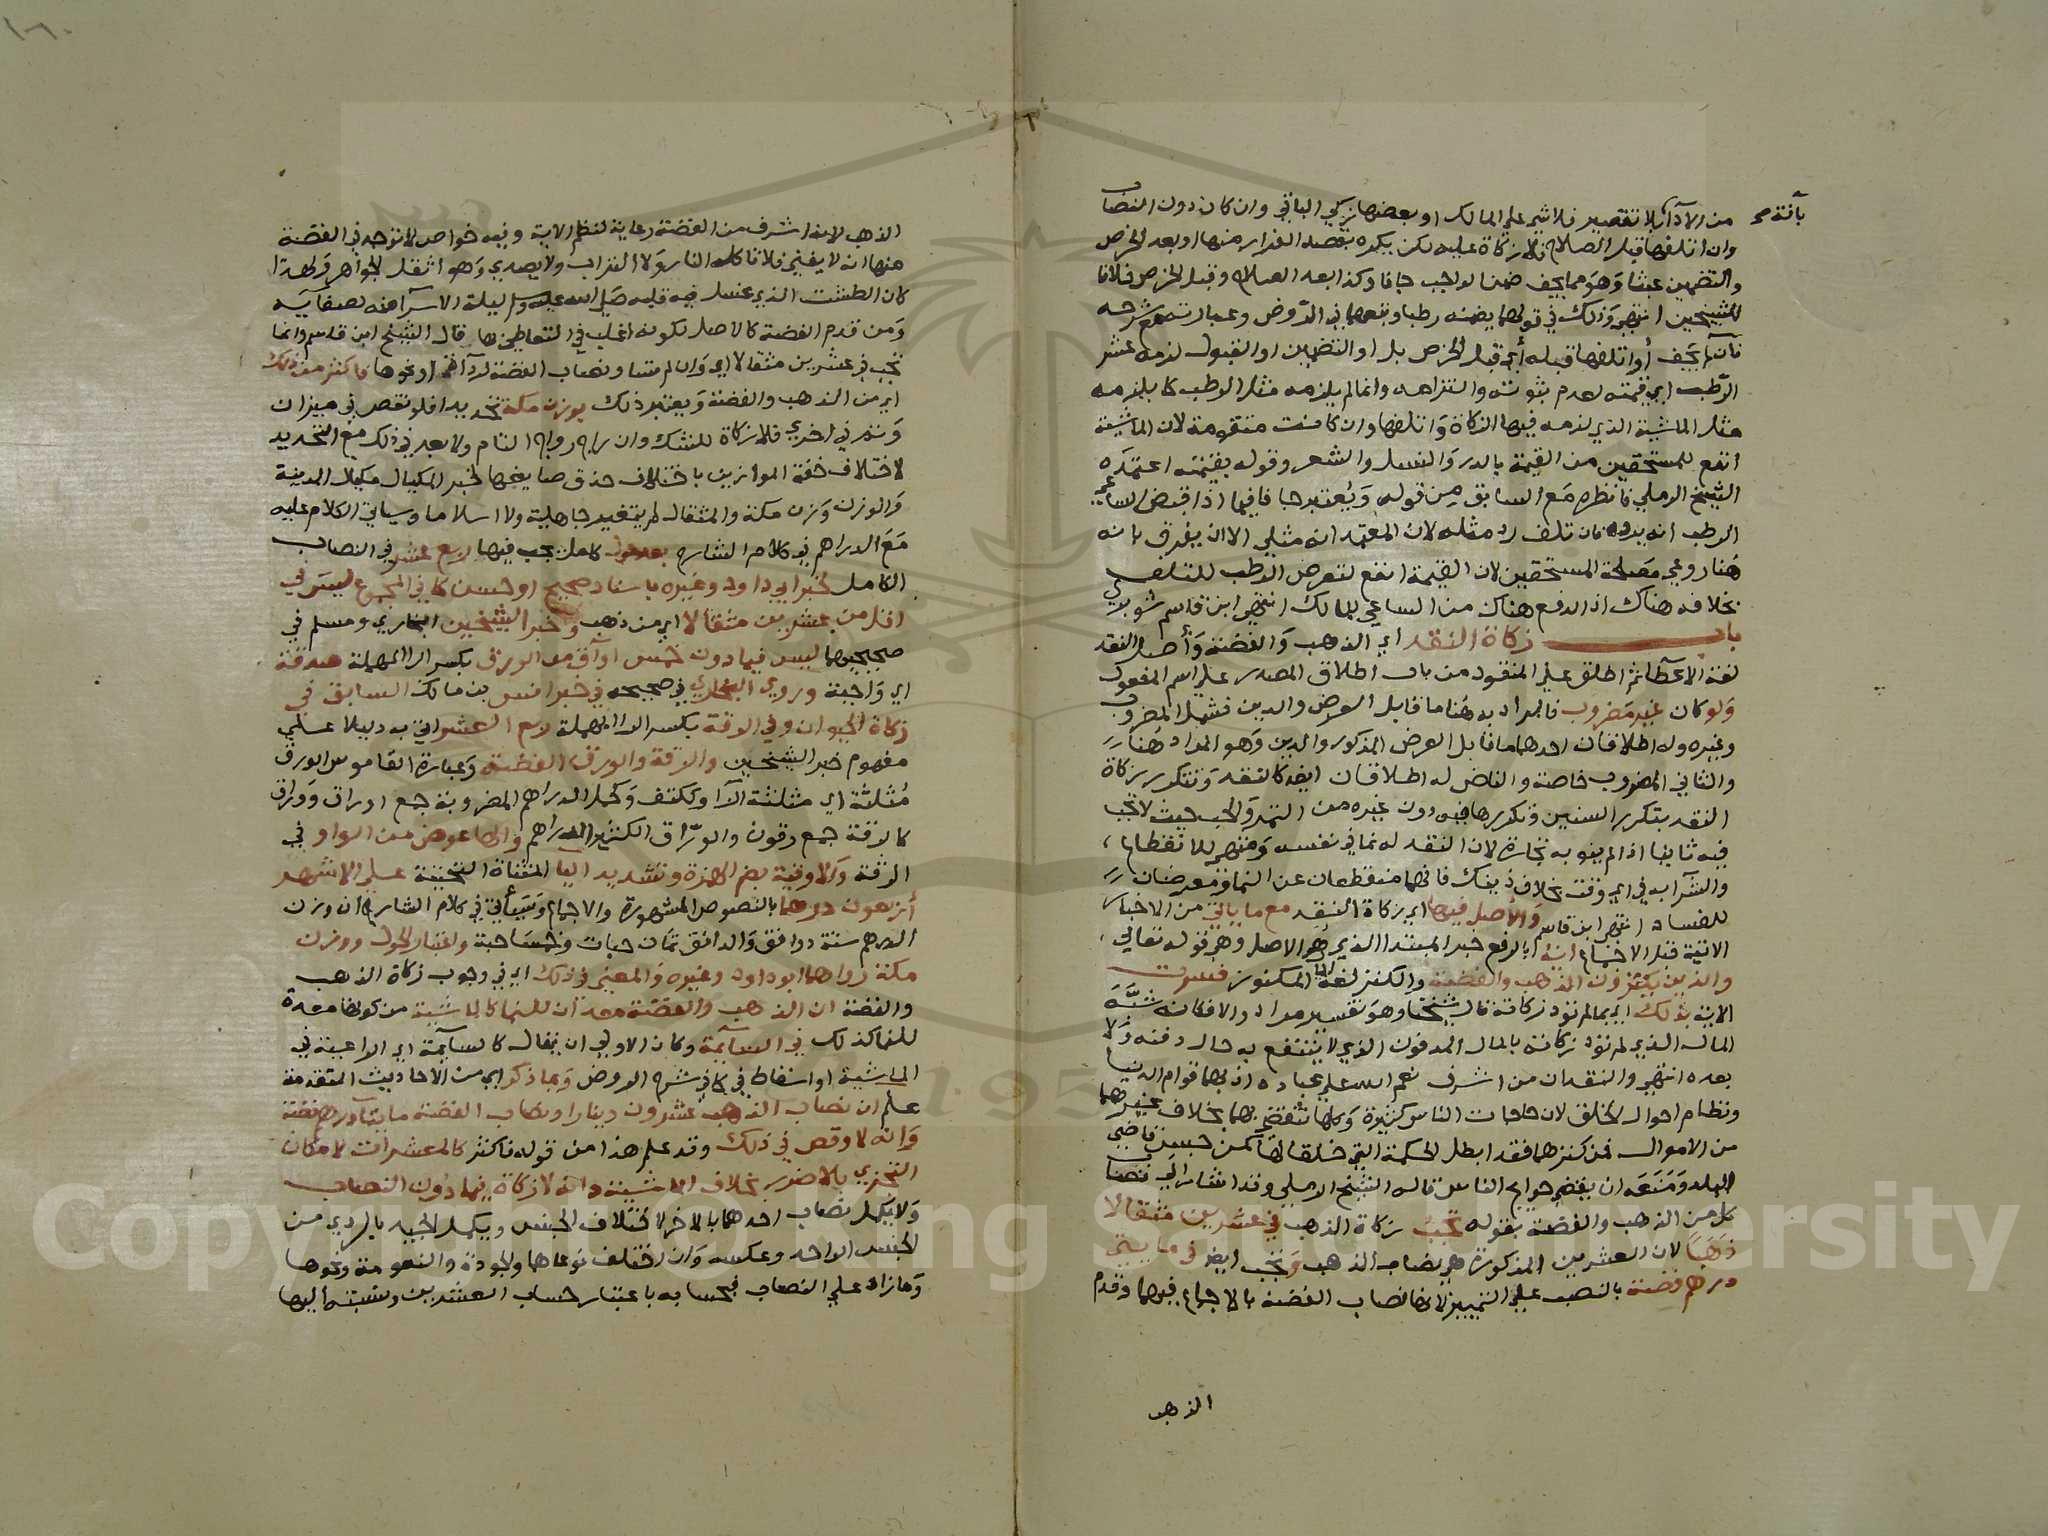 بآفة صح
من الاداء بلا تقصير فلا شي علي المالك او بعضها زكي الباقي وان كان دون النصاب
وان اتلفها قبل الصلاح فلا زكاة عليه لكن يكره بقصد الفرار منها او بعد الخرص
والتضمين عبثا وهو مما يجف ضمن الواجب جافا وكذا بعد الصلاح وقبل الخرص خلافا
للشيخين انتهي وذلك في قولهما يضمنه رطبا وتبعهما في الروض وعبارته مع شرحه
فان لم يجف أو اتلفها قبله أي قبل الخرص بل او التضمين او القبول لزمه عشر
الرطب اي قيمته لعدم ثبوته والتزامه وانما لم يلزمه مثل الرطب كما يلزمه
مثل الماشية الذي لزمه فيها الزكاة واتلفها وان كانت متقومة لان الماشية
أنفع للمستحقين من القيمة بالدر والنسل والشعر وقوله بقيمته اعتمده
الشيخ الرملي فانظره مع السابق من قوله ويعتبر جافا فيما اذا قبض الساعي
الرطب انه يرده فان تلف رد مثله لان المعتمد انه مثلي الا ان يفرق بانه
هنا روعي مصلحة المستحقين لان القيمة انفع لتعرض الرطب للتلف
بخلافه هناك اذ الدفع هناك من الساعي للمالك انتهي ابن قاسم شوبري
باب زكاة النقد اي الذهب والفضة وأصل النقد
لغة الاعطا ثم اطلق علي المنقود من باب اطلاق المصدر علي اسم المفعول
ولو كان غير مضروب فالمراد به هنا ما قابل العرض والدين فشمل المضروب
وغيره وله اطلاقان احدهما ما قابل العرض المذكور والدين وهو المراد هنا
والثاني المضروب خاصة والناض له اطلاقان ايضا كالنقد وتتكرر زكاة
النقد بتكرر السنين وتكررها فيه دون غيره من التمر والحب حيث لا تجب
فيه ثانيا اذا لم ينو به تجارة لان النقد له نما في نفسه ومتهي للانقطاع
والشرا به في اي وقت بخلاف ذينك فانهما منقطعان عن النما ومعرضان
للفساد انتهي ابن قاسم والأصل فيها اي زكاة النقد مع ما ياتي من الاخبار
الاتية قبل الاجماع انه بالرفع خبر المبتدا الذي هو الاصل وهو قوله تعالي
والذين يكنزون الذهب والفضة والكنز لغة المال المكنوز فسرت
الاية بذلك اي بما لم تؤد زكاته قال شيخنا وهو تفسير مراد والا فكانه شبه
المال الذي لم تؤد زكاته بالمال المدفون الذي لا ينتفع به حال دفنه ولا
بعده انتهي والنقدان من اشرف نعم الله علي عباده اذ بهما قوام الدنيا
ونظام احوال الخلق لان حاجات الناس كثيرة وكلها تنقضي بهما بخلاف غيرهما
من الاموال فمن كنزهما فقد ابطل الحكمة التي خلقا لها كمن حبس قاضي
البلد ومنعه ان يقضي حوايج الناس قاله الشيخ الرملي وقد اشار الي نصاب
كل من الذهب والفضة بقوله تجب زكاة الذهب في عشرين مثقالا
ذهبا لان العشرين المذكورة هي نصاب الذهب وتجب ايضا في مايتي
درهم فضة بالنصب علي التمييز لانها نصاب الفضة بالاجماع فيهما وقدم
الذهب
الذهب لانه اشرف من الفضة رعاية لنظم الاية وفيه خواص لا توجد في الفضة
منها انه لا يفني فلا تاكله النار ولا التراب ولا يصدي وهو اثقل الجواهر ولهذا
كان الطشت الذي غسل فيه قلبه صلي الله عليه وسلم ليلة الاسرا منه لصفاييه
ومن قدم الفضة كالاصل لكونه اغلب في التعاطي بها قال الشيخ ابن قاسم وانما
تجب في عشرين مثقالا اي وان لم متنا ونصاب الفضة لرداءة او نحوها فاكثر من ذلك
اي من الذهب والفضة ويعتبر ذلك بوزن مكة تحديدا فلو نقص في ميزان
وتم في اخري فلا زكاة للشك وان راج رواج التام ولا بعد في ذلك مع التحديد
لاختلاف خفة الموازين باختلاف حذق صانعها لخبر المكيال مكيال المدينة
والوزن وزن مكة والمثقال لم يتغير جاهلية ولا اسلاما وسياتي الكلام عليه
مع الدراهم في كلام الشارح بعد حول كامل يجب فيها ربع عشر في النصاب
الكامل لخبر ابي داود وغيره باسناد صحيح او حسن كما في المجموع ليس في
اقل من عشرين مثقالا اي من ذهب وخبر الشيخين البخاري ومسلم في
صحيحيهما ليس فيما دون خمس اواق من الورق بكسر الرا المهملة صدقة
اي واجبة وروي البخاري في صحيحه في خبر انس بن مالك السابق في
زكاة الحيوان وفي الرقة بكسر الرا المهملة ربع العشر اتي به دليلا علي
مفهوم خبر الشيخين والرقة والورق الفضة وعبارة القاموس الورق
مثلثة اي مثلثة الرا وككتف وكجبل الدراهم المضروبة جمع اوراق ووراق
كالرقة جمع رقون والورّاق الكثير الدراهم والها عوض من الواو في
الرقة والاوقية بضم الهمزة وتشديد اليا المثناة التحتية علي الاشهر
أربعون درهما بالنصوص المشهورة والاجماع وسيأتي في كلام الشارح ان وزن
الدرهم ستة دوانق والدانق ثمان حبات وخمسا حبة واعتبار الحول ووزن
مكة رواهما ابو داود وغيره والمعني في ذلك اي في وجوب زكاة الذهب
والفضة ان الذهب والفضة معدان للنما كالماشية من كونها معدة
للنما كذلك في السآئمة وكان الاولي ان يقال كالسآئمة اي الراعية في
الماشية او اسقاط في كما في شرح الروض وبما ذكر اي من الاحاديث المتقدمة
علم ان نصاب الذهب عشرون دينارا ونصاب الفضة مايتا درهم فضة
وانه لا وقص في ذلك وقد علم هذا من قوله فاكثر كالمعشرات لامكان
التجزي بلا ضرر بخلاف الماشية وانه لا زكاة فيما دون النصاب
ولا يكمل نصاب احدهما بالاخر لاختلاف الجنس ويكمل الجيد بالردي من
الجنس الواحد وعكسه وان اختلف نوعاهما والجودة والنعومة ونحوها
وما زاد علي النصاب فبحسابه باعتبار حساب العشرين ونسبته اليها
Copyright © King Saud University